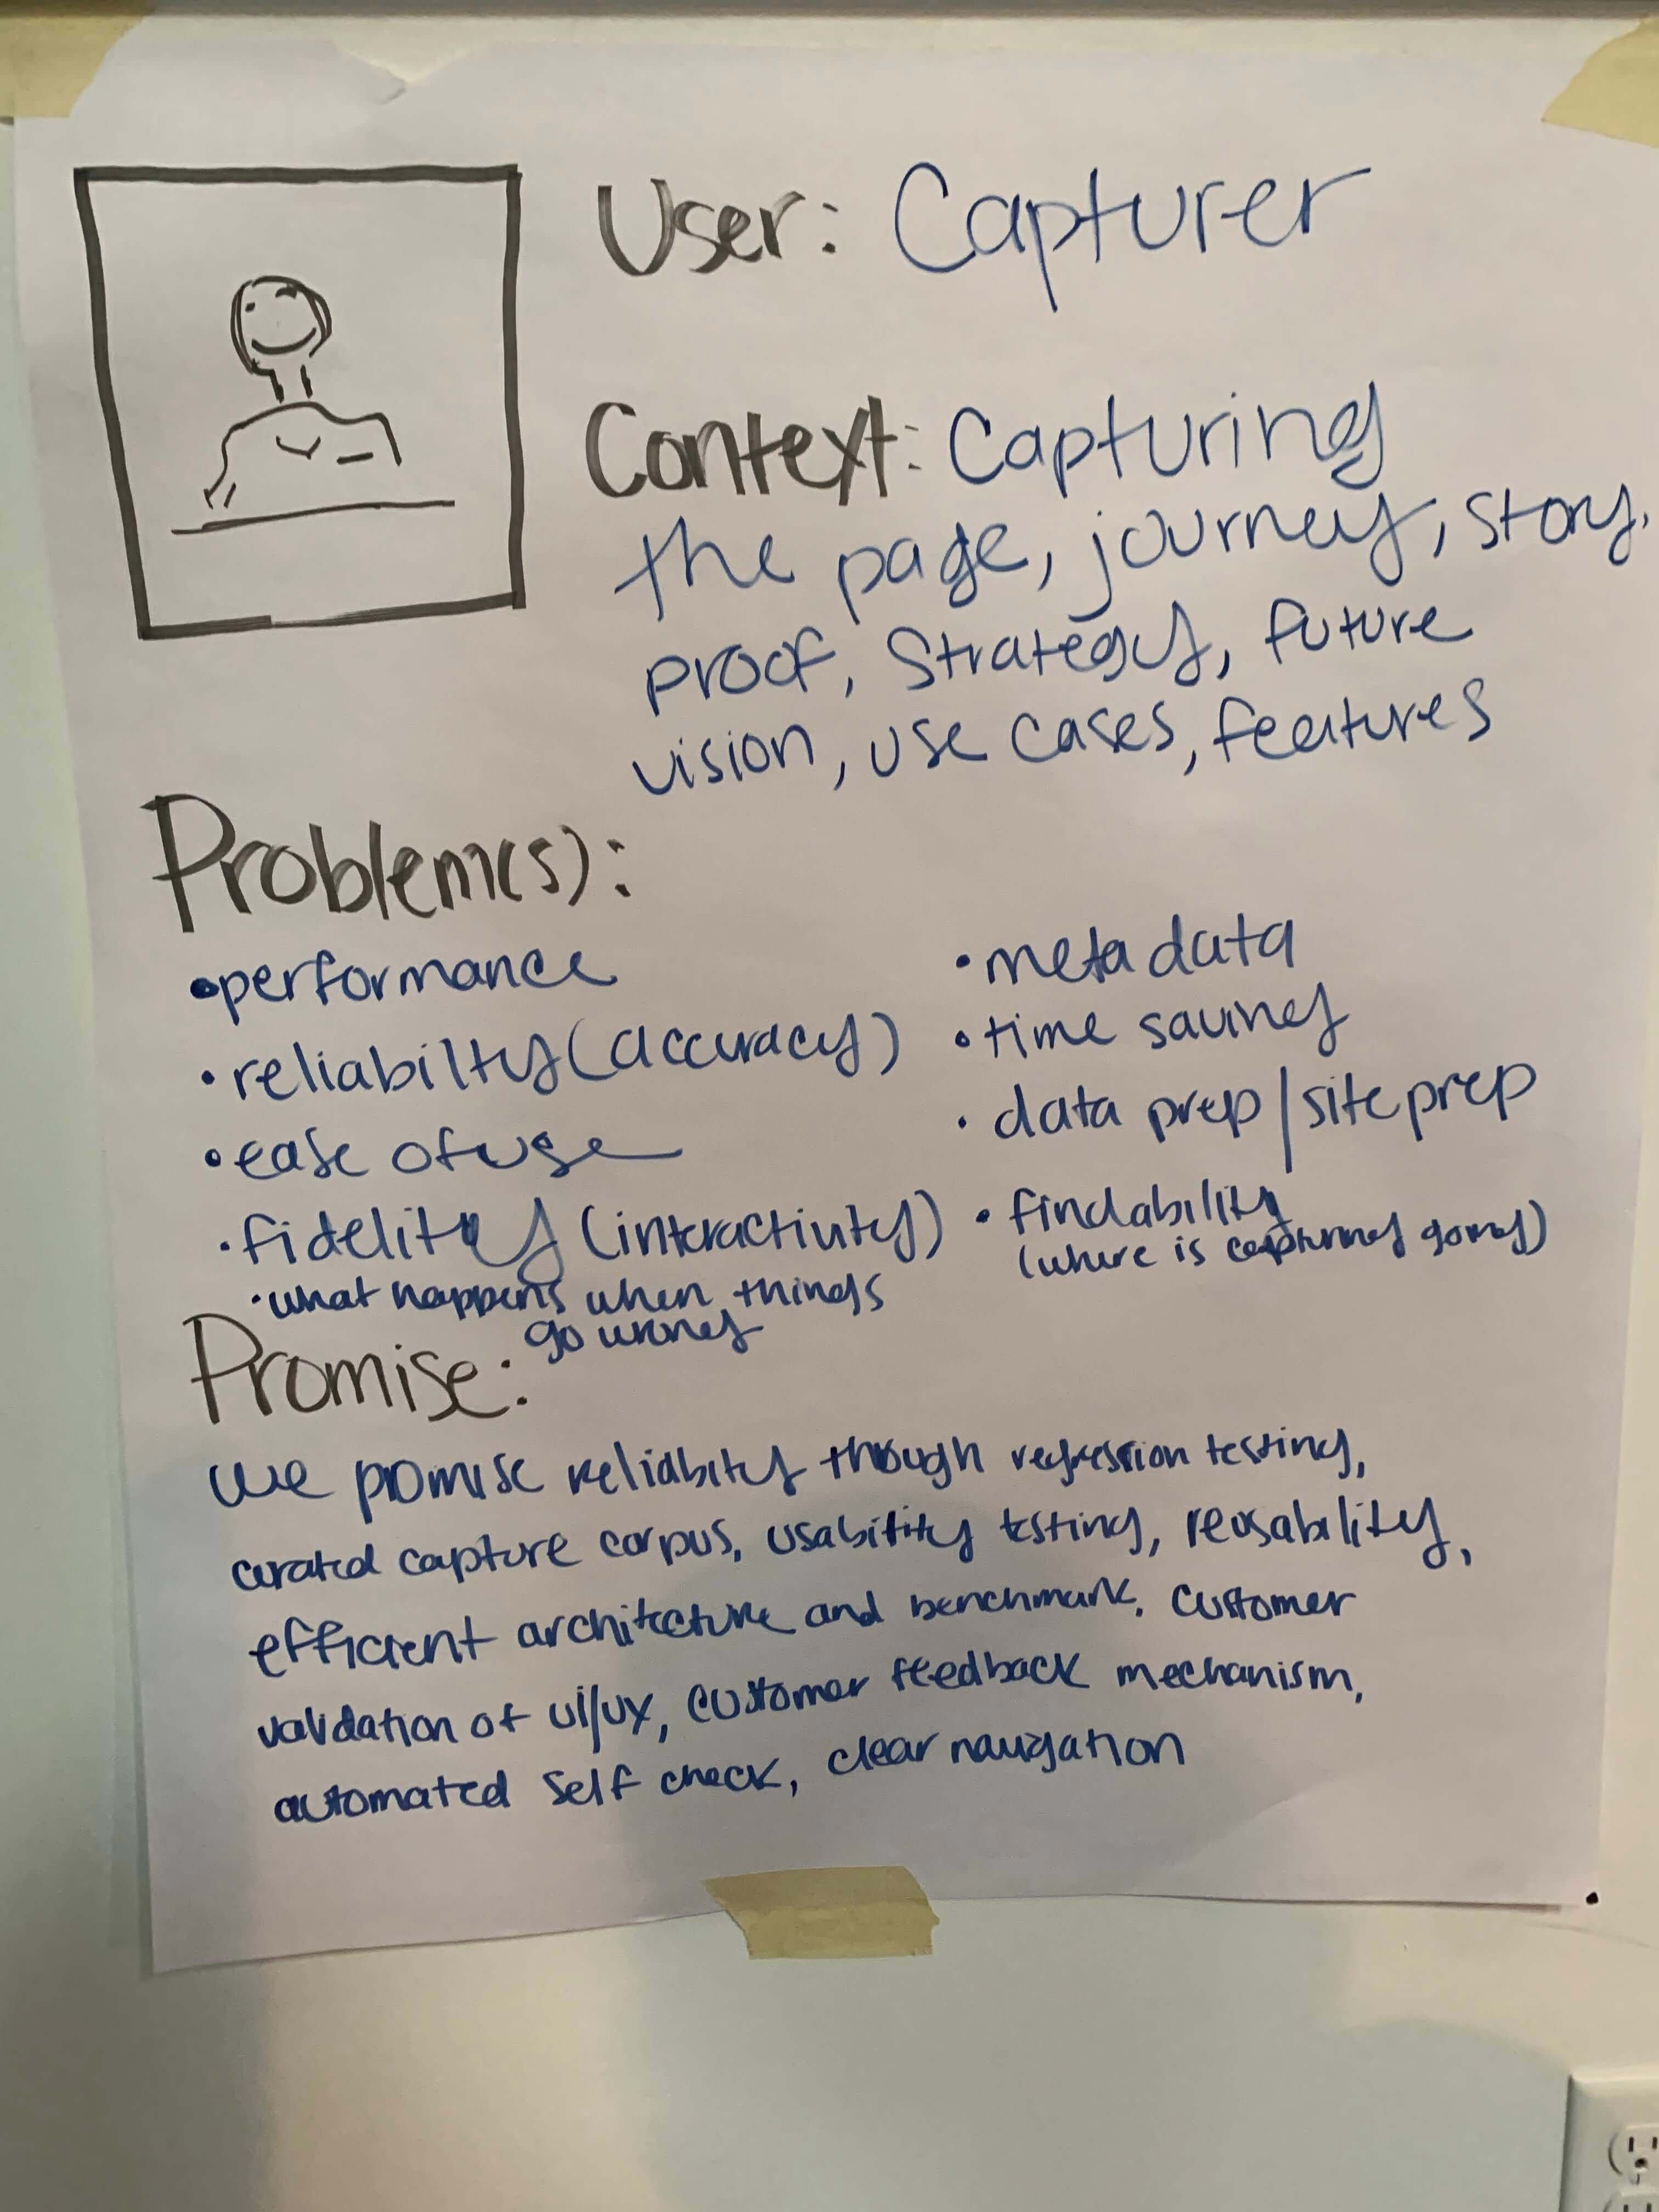 User: Capturer
Context: Capturing
the page, journey, story,
proof, Strategy, future
vision, use cases, features
Problem(s):
•performance
•reliabilty (accuracy)
•ease of use
•fidelity (interactivity)
•what happens when things
go wrong
•metadata
•time saving
•data prep/site prep
•findability
(where is capturing going)
Promise:
we promise reliability though regression testing,
curated capture corpus, usability testing, reusability,
efficient architecture and benchmark, customer
validation of ui/ux, customer feedback mechanism,
automated self check, clear navigation